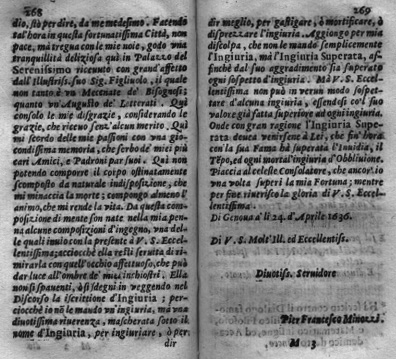 268
dio, stò per dire, da me medesimo. Facendo
tal'hora in questa fortunatissima Città, non
pace, mà tregua con le mie noie, godo vna
tranquillità deliziosa quì in Palazzo del
Serenissimo riceuuto con grand'affetto
dall'Illustriss. suo Sig. Figliuolo, il quale
non tanto è vn Mecenate de' Bisognosi;
quanto vn'Augusto de' Letterati. Quì
consolo le mie disgrazie, considerando le
grazie, che riceuo senz'alcun merito. Quì
mi scordo delle mie passioni con vna gio-
condissima memoria, che serbo de' miei più
cari Amici, e Padroni par suoi. Quì non
potendo comporre il corpo ostinatamente
scomposto da naturale indisposizione, che
mi minaccia la morte; compongo almeno l'
animo, che mi rende la vita. Da questa com-
posizione di mente son nate nella mia pen-
na alcune composizioni d'ingegno, vna del-
le quali inuio con la presente à V. S. Eccel-
lentissima; acciochè ella resti seruita di ri-
mirarla con quell'occhio affettuoso, che può
dar luce all'ombre de' miei inchiostri. Ella
non si spauenti, ò si sdegni in veggendo nel
Discorso la iscrittione d'Ingiuria; per-
ciocchè io nō le mando vn'ingiuria, ma vna
diuotissima riuerenza, mascherata sotto il
nome d'Ingiuria, per ingiuriare, ò per
dir
269
dir meglio, per gastigare, ò mortificare, ò
disprezzare l'ingiuria. Aggiongo per mia
discolpa, che non le mando semplicemente
l'Ingiuria, mà l'Ingiuria Superata, af-
finchè dal suo aggradimento sia superato
ogni sospetto d'ingiuria. Mà V. S. Eccel-
lentissima non può in verun modo sospet-
tare d'alcuna ingiuria, essendosi co'l suo
valore già fatta superiore ad ogni ingiuria.
Onde con gran ragione l'Ingiuria Supe-
rata douea venirsene à Lei, che fin'hora
con la sua Fama hà superata l'Inuidia, il
Tēpo, ed ogni mortal'ingiuria d'Obbliuione.
Piaccia al celeste Consolatore, che ancor'io
vna volta superi la mia Fortuna; mentre
per fine riuerisco la gloria di V. S. Eccel-
lentissima.
Di Genoua a li 24. d'Aprile 1636.
Di V. S. Molt'Ill. ed Eccellentiss.
Diuotiss. Seruidore
Pier Francesco Minozzi.
M 3